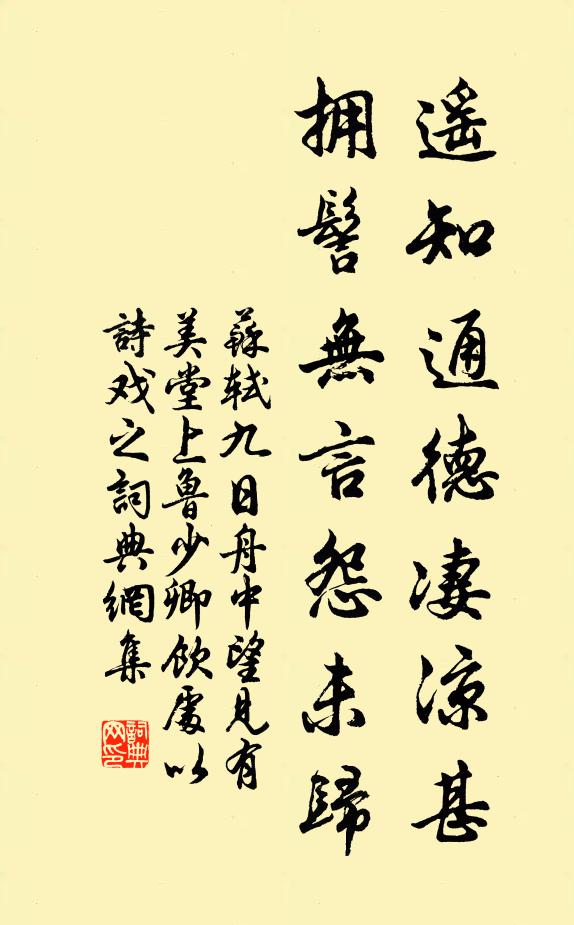 遥知通德凄涼甚
拥髻無言怨未歸
蘇轼九日舟中望見有
美堂上魯少卿飲處以
詩戏之詞典網集
詞典
网印